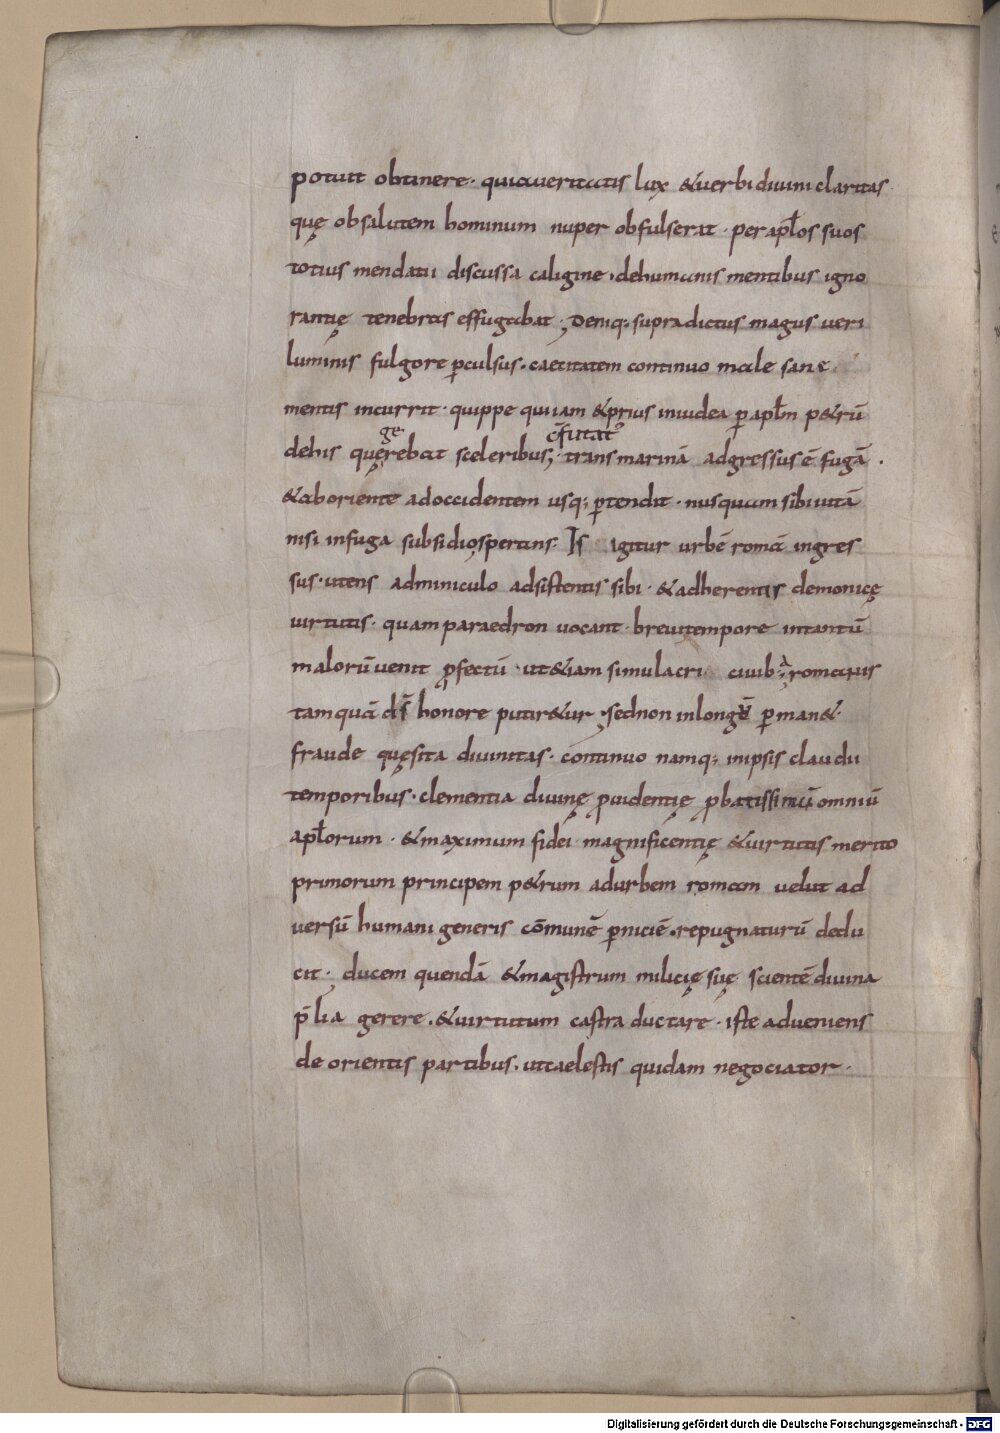 potuit obtinere · quia ueritatis lux & uerbi diuini claritas
quę ob salutem hominum nuper obfulserat · per apl̄os suos
totius mendatii discussa caligine · de humanis mentibus igno
rantię tenebras effugabat · Deniq; supradictus magus ueri
luminis fulgore ꝑculsus · caecitatem continuo male sane
mentis incurrit · quippe qui iam & prius in iudea ꝑ apl̄m p&rū
ge c̄futat᾽
de his quęrebat sceleribus; · trans marinā adgressus ē fugā ·
& ab oriente ad occidentem usq; ꝑtendit · nusquam sibi uitā
nisi in fuga subsidio sperans · Is igitur urbē romā ingres
sus · utens adminiculo adsistentis sibi · & adherentis demonicę
uirtutis · quam paraedron uocant · breui tempore in tantū
malorū uenit ꝓfectū · ut &iam simulacri ciuib; a romanis
tam quā dī honore putir&ur · sed non in longū ꝑman&
fraude quęsita diuinitas · continuo namq; in ipsis claudii
temporibus · clementia diuinę ꝓuidentię ꝓbatissimū omniū
apl̄orum · & maximum fidei magnificentię & uirtutis merito
primorum principem p&rum ad urbem romam uelut ad
uersū humani generis cōmunē ꝑniciē · repugnaturū dedu
cit · ducem quendā & magistrum milicię suę scientē diuina
p̄lia gerere · & uirtutum castra ductare · iste adueniens
de orientis partibus · ut caelestis quidam negociator ·
Digitalisierung gefördert durch die Deutsche Forschungsgemeinschaft - DFG